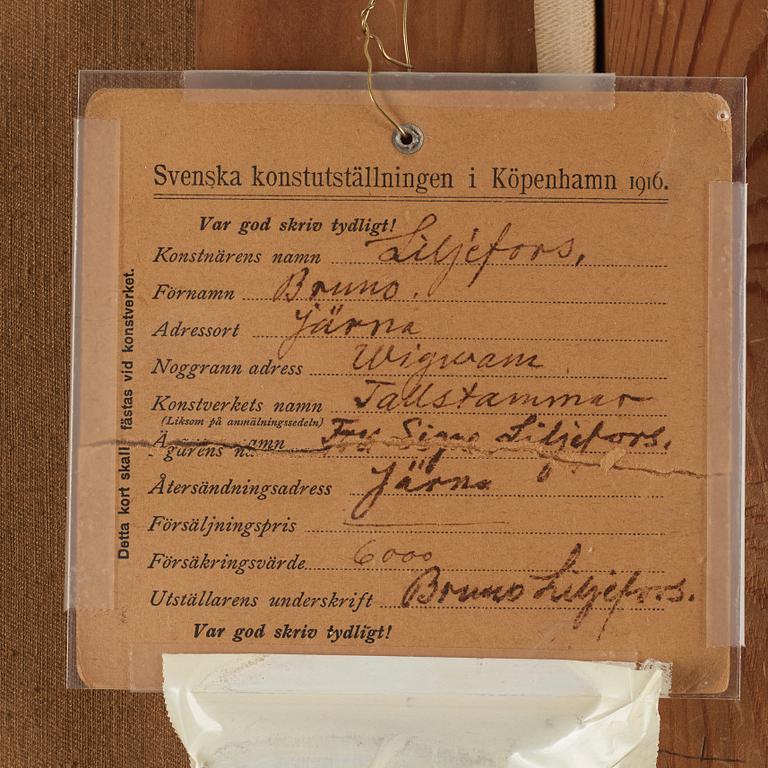 Svenska konstutställningen i Köpenhamn 1916.
Var god skriv tydligt!
Konstnärens namn Liljefors,
Förnamn Bruno.
Adressort Järna
Noggrann adress Wigwam
Konstverkets namn Tallstammar
(Liksom på anmälningssedeln)
Ägarens namn Fru Signe Liljefors.
Återsändningsadress Järna
Försäljningspris
Försäkringsvärde 6000
Utställarens underskrift Bruno Liljefors.
Var god skriv tydligt!
Detta kort skall fästas vid konstverket.